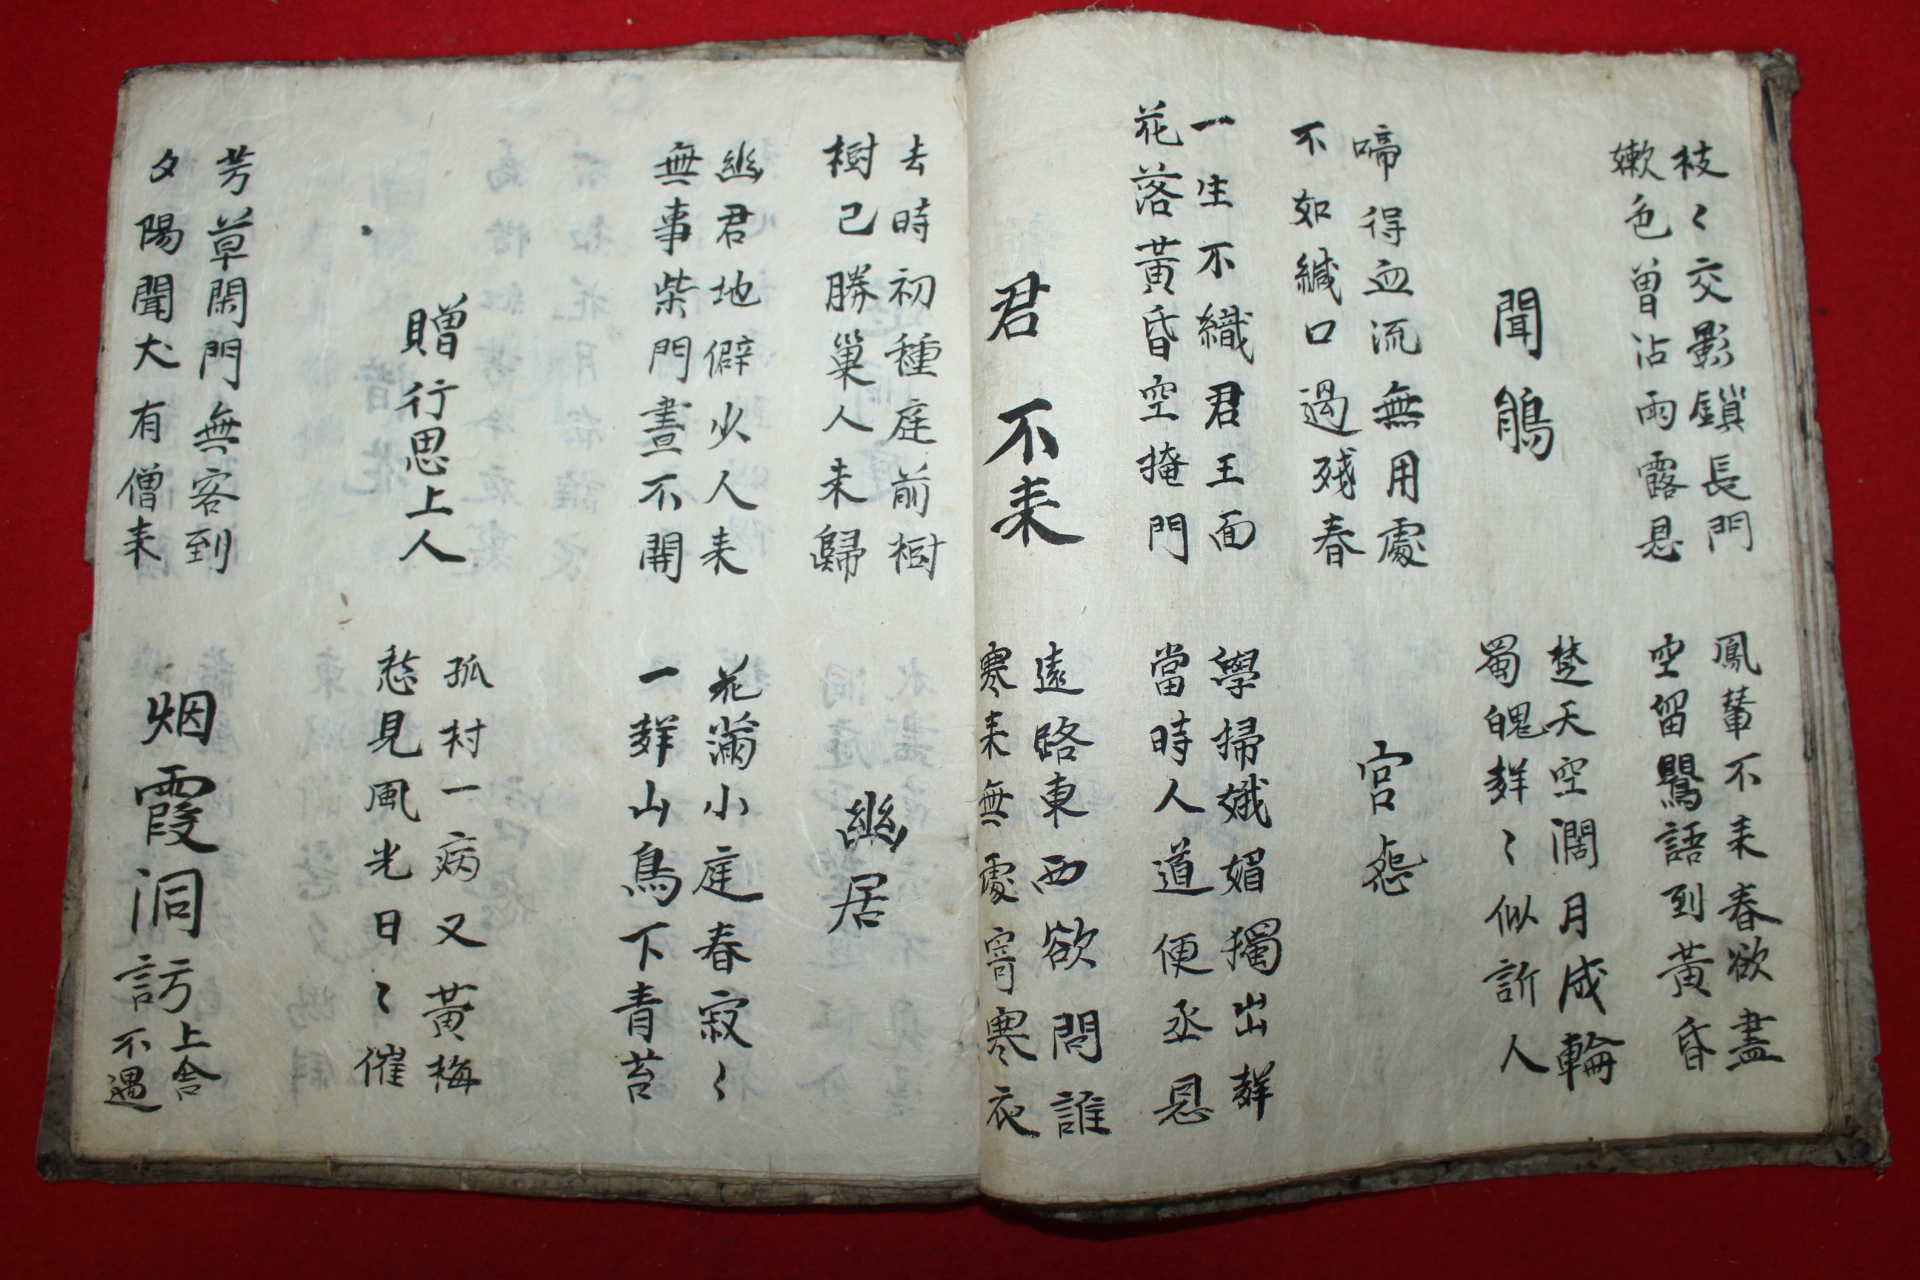 枝〻交影鎖長門
嫩色曾沾雨露恩
鳳輦不来春欲盡
空留鸎語到黃昏
聞鵑
楚天空濶月成輪
蜀魄聲〻似訴人
啼得血流無用處
不如緘口過殘春
宮怨
一生不識君王面
花落黃昏空掩門
學掃娥媚獨出群
當時人道便承恩
君不来
遠路東西欲問誰
寒来無處寄寒衣
去時初種庭前樹
樹已勝巢人未歸
幽居
幽君地僻少人来
無事柴門晝不開
花滿小庭春寂〻
一聲山鳥下青苔
贈行思上人
孤村一病又黃梅
愁見風光日〻催
芳草閑門無客到
夕陽聞犬有僧来
烟霞洞訪上舍不遇